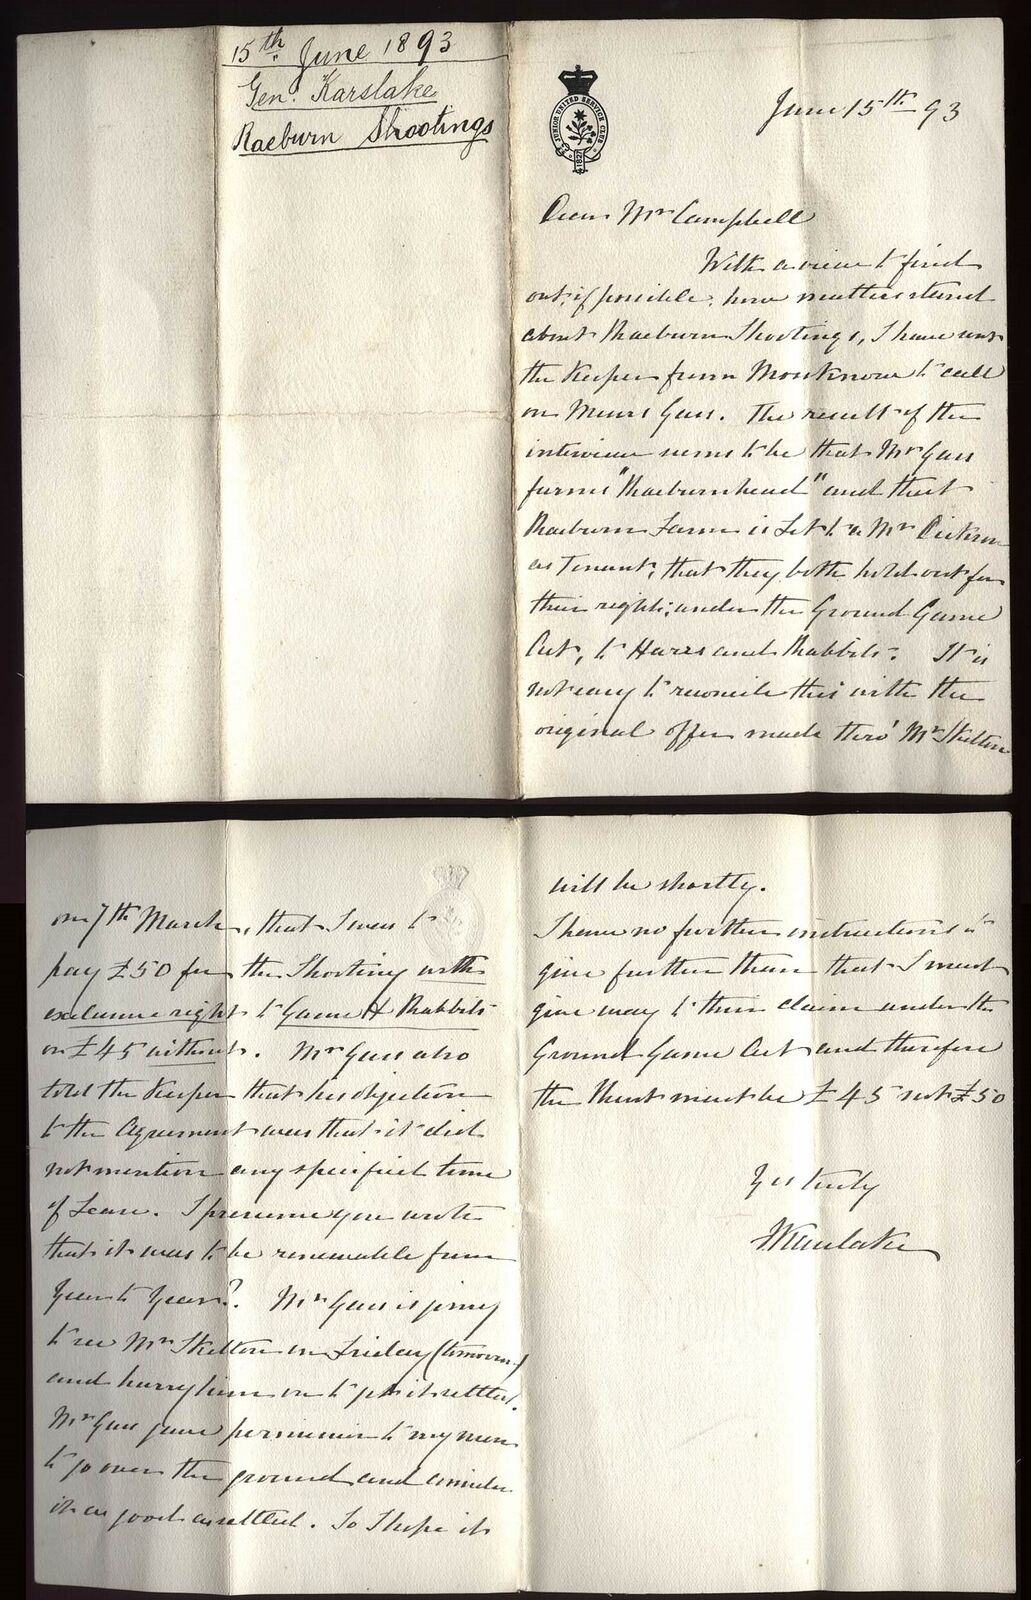 15th June 1893
Genl. Karslake
Raeburn Shootings
JUNIOR UNITED SERVICE CLUB
1827
June 15th 93
Dear Mr Campbell
With a view to find
out, if possible, how matters stand
about Raeburn Shootings, I have
the Keeper from Monknowe to call
on Messrs Gass. The result of the
interview seems to be that Mr Gass
farms "Raeburnhead" and that
Raeburn Farm is Let to a Mr Dickson
as Tenant; that they both hold out for
their rights, under the Ground Game
Act, to Hares and Rabbits. It is
not easy to reconcile this with the
original offer made thro' Mr Skelton
on 7th March, that I was to
pay £50 for the Shooting with
exclusive right to Game & Rabbits
or £45 without. Mr Gass also
told the Keeper that his objection
to the Agreement was that it did
not mention any specified time
of Lease. I presume you wrote
that it was to be renewable from
Year to Year? Mr Gass is going
to see Mr Skelton on Friday (tomorrow)
and hurry him on to get it settled.
Mr Gass gave permission to my man
to go over the ground and consider
it as good as settled. So I hope it
will be shortly.
I have no further instructions to
give further than that I must
give way to their claim under the
Ground Game Act and therefore
the Rent must be £45 not £50
Yrs truly
Karslake